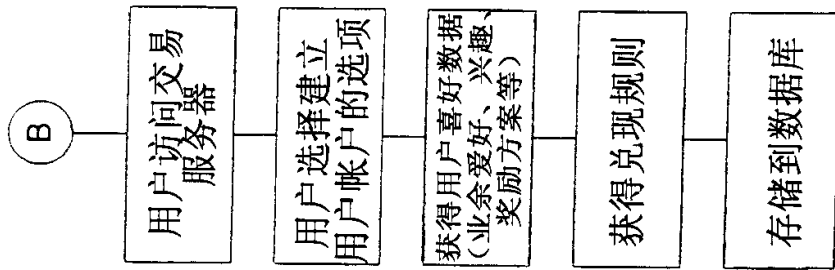 B
用户访问交易
服务器
用户选择建立
用户帐户的选项
获得用户喜好数据
(业余爱好、兴趣、
奖励方案等)
获得兑现规则
存储到数据库